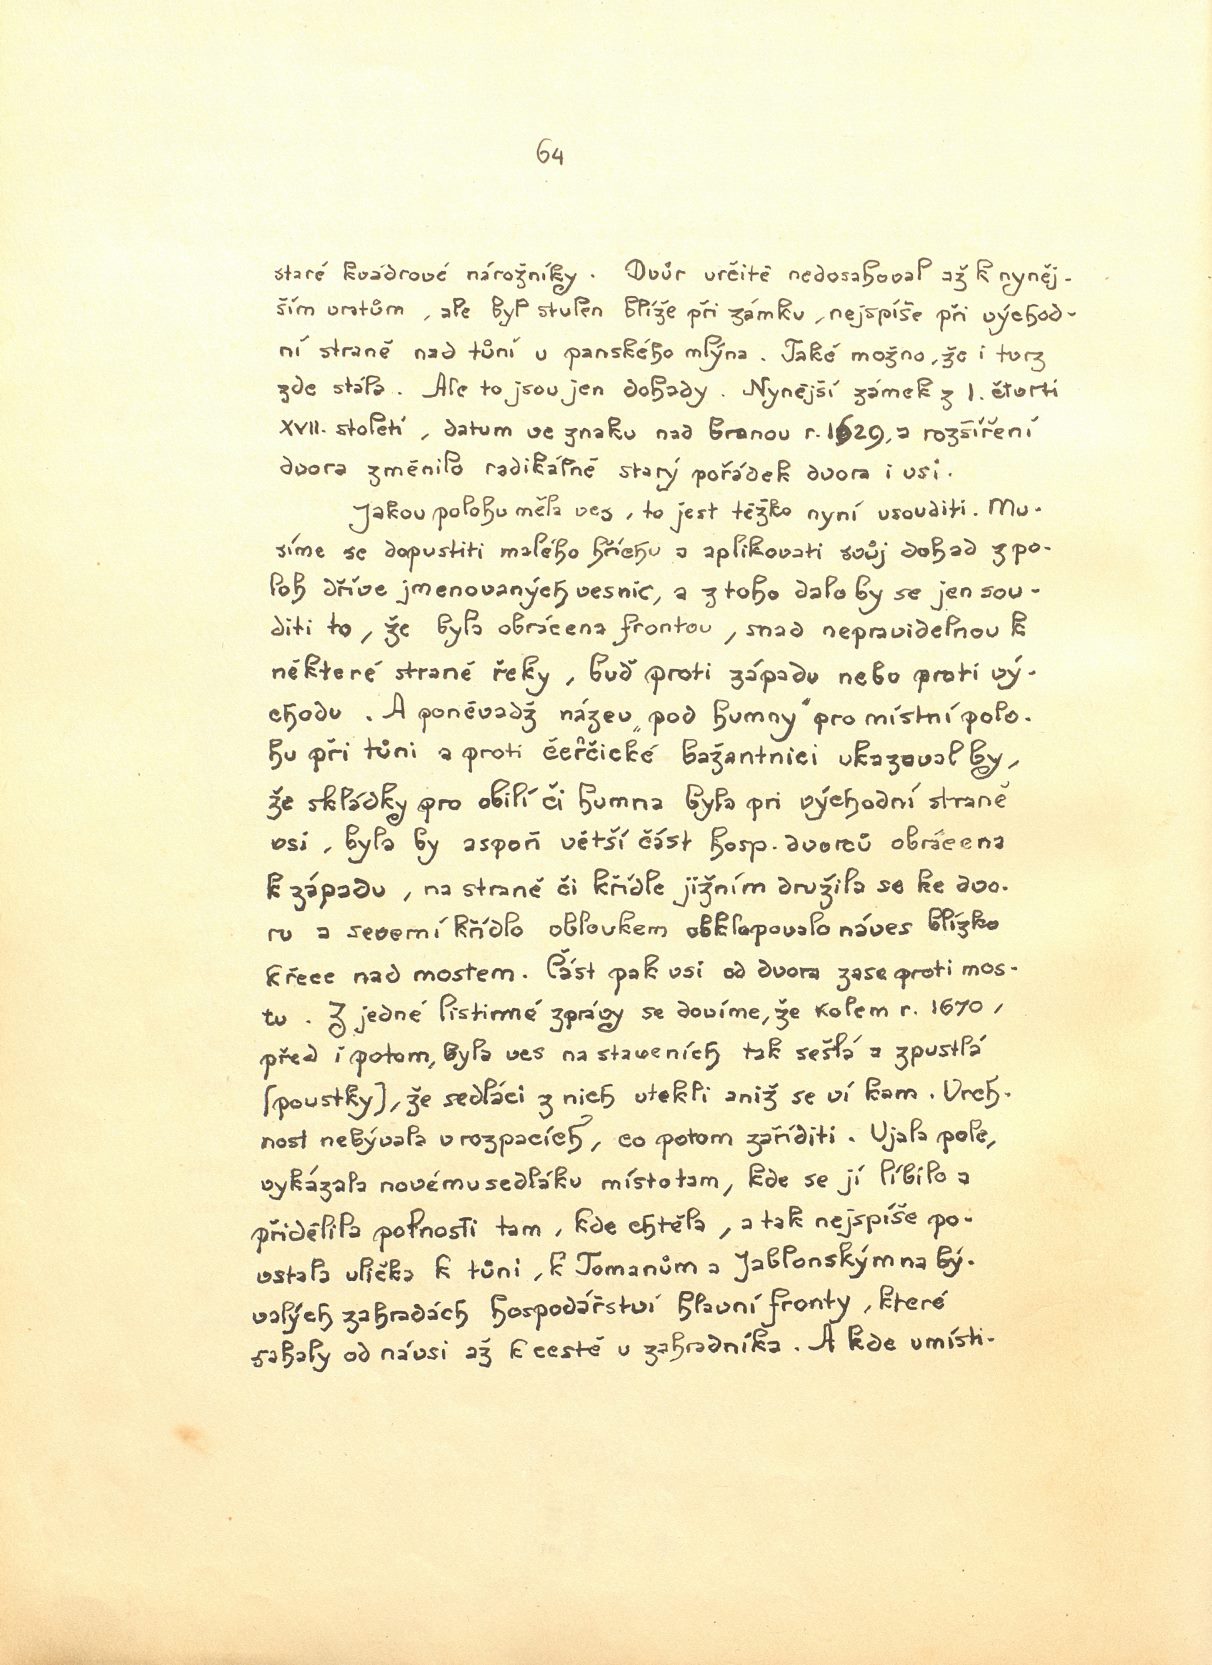 64
staré kvádrové nárožníky. Dvůr určitě nedosahoval až k nyněj-
ším vratům, ale byl stulen blíže při zámku, nejspíše při východ-
ní straně nad tůní u panského mlýna. Také možno, že i tvrz
zde stála. Ale to jsou jen dohady. Nynější zámek z I. čtvrti
XVII. století, datum ve znaku nad branou r. 1629, a rozšíření
dvora změnilo radikálně starý pořádek dvora i vsi.
Jakou polohu měla ves, to jest těžko nyní usouditi. Mu-
síme se dopustiti malého hříchu a aplikovati svůj dohad z po-
loh dříve jmenovaných vesnic, a z toho dalo by se jen sou-
diti to, že byla obrácena frontou, snad nepravidelnou k
některé straně řeky, buď proti západu nebo proti vý-
chodu. A poněvadž název „pod humny" pro místní polo-
hu při tůni a proti čerčické bažantnici ukazoval by,
že skládky pro obilí či humna byla pri východní straně
vsi, byla by aspoň větší část hosp. dvorců obrácena
k západu, na straně či křídle jižním družila se ke dvo-
ru a severní křídlo obloukem obklopovalo náves blízko
k řece nad mostem. Část pak vsi od dvora zase proti mos-
tu. Z jedné listinné zprávy se dovíme, že kolem r. 1670,
před i potom, byla ves na staveních tak sešlá a zpustlá
[poustky], že sedláci z nich utekli aniž se ví kam. Vrch-
nost nebývala v rozpacích, co potom zaříditi. Ujala pole,
vykázala novému sedláku místo tam, kde se jí líbilo a
přidělila polnosti tam, kde chtěla, a tak nejspíše po-
vstala ulička k tůni, k Tomanům a Jablonským na bý-
valých zahradách hospodářství hlavní fronty, které
sahaly od návsi až k cestě u zahradníka. A kde umísti-